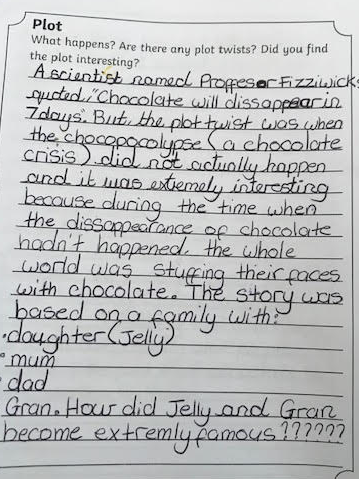 Plot
What happens? Are there any plot twists? Did you find
the plot interesting?
A scientist named Proffesor Fizziwicks
quoted, "Chocolate will dissappear in
7days". But, the plot twist was when
the chocopocolypse (a chocolate
crisis) did not actually happen
and it was extemely interesting
because during the time when
the dissappearance of chocolate
hadn't happened, the whole
world was stuffing their faces
with chocolate. The story was
based on a family with:
•daughter (Jelly)
•mum
•dad
Gran. How did Jelly and Gran
become extremly famous??????